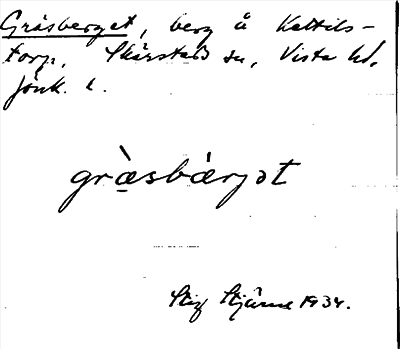 Gräsberget, berg å Kättils-
torp, Skärstads sn, Vista hd,
Jönk. l.
græ̀sbærjət
Stig Stjärne 1934.